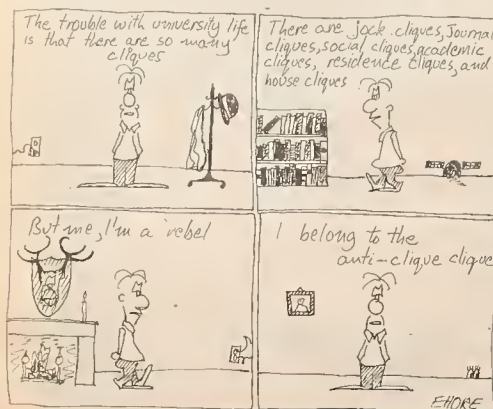 The trouble with university life
is that there are so many
cliques
There are jock cliques, Journal
cliques, social cliques, academic
cliques, residence cliques, and
house cliques
But me, I'm a rebel
I belong to the
anti-clique clique
EHORE